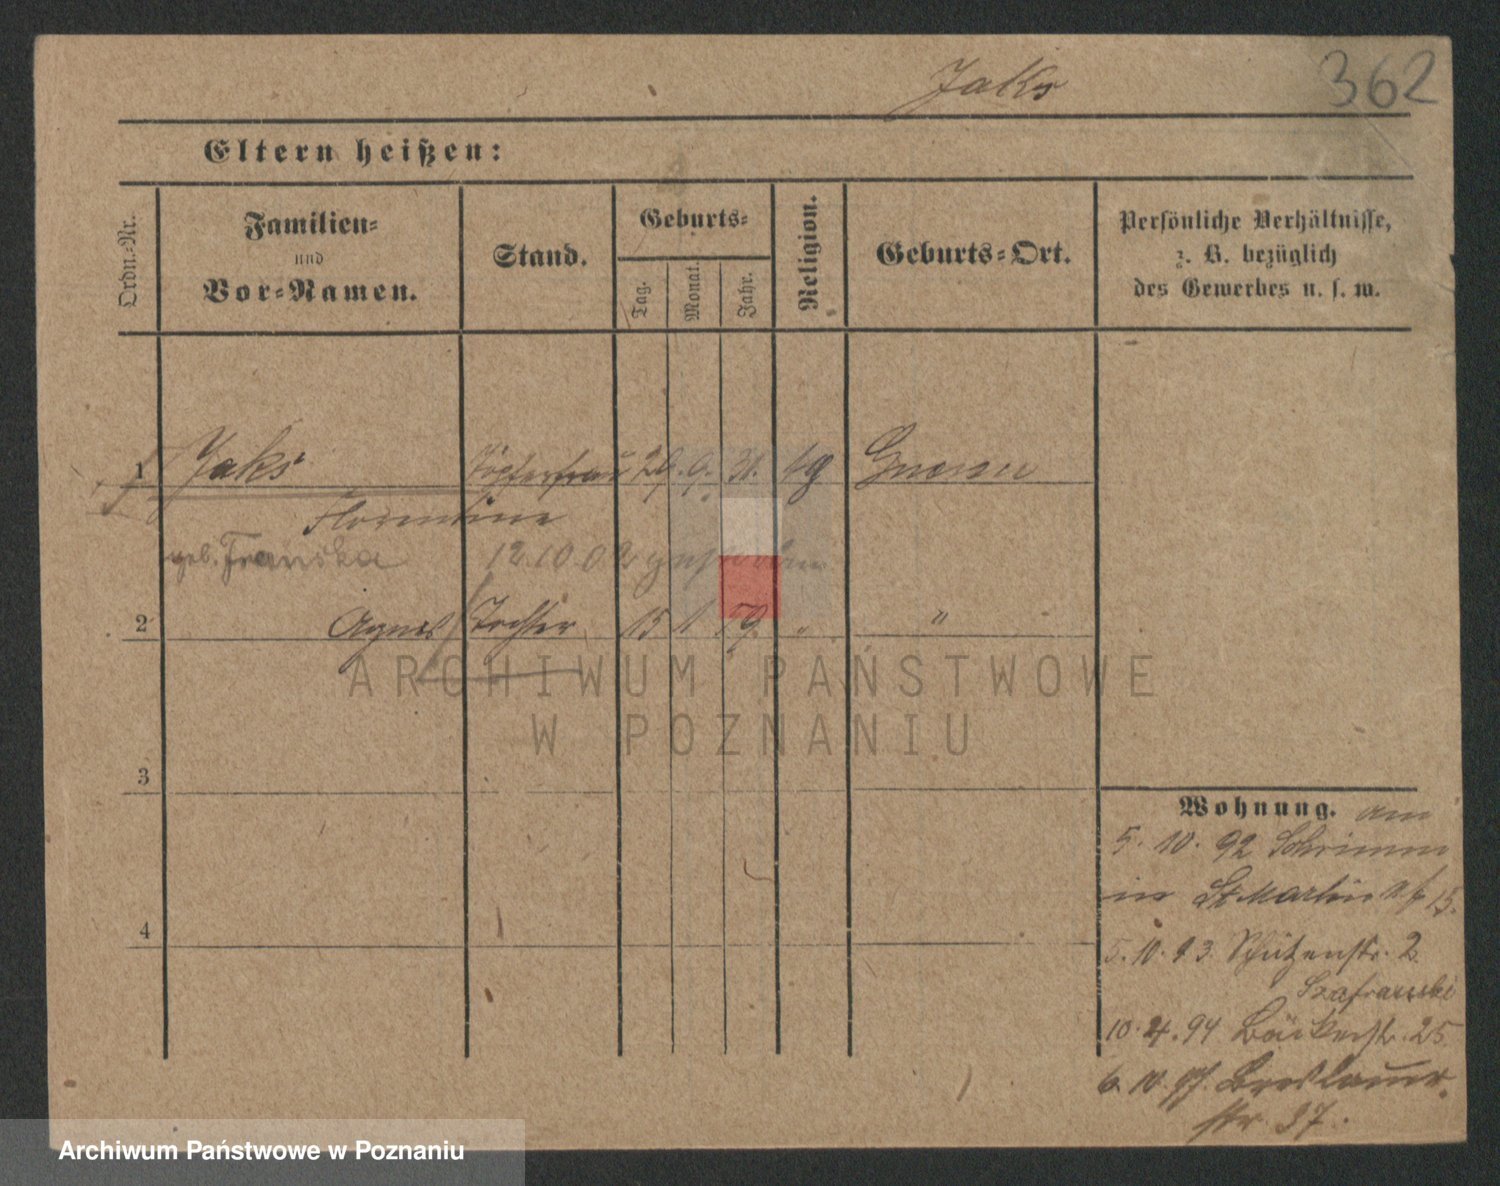 Jaks 362
Eltern heißen:
Ordn.-Nr.
Familien-
und
Vor-Namen.
Stand.
Geburts-
Tag.
Monat.
Jahr.
Religion.
Geburts-Ort.
Persönliche Verhältnisse,
z. B. bezüglich
des Gewerbes u. s. w.
1 Jaks Töpferfrau 29. 9. 31. Gnesen
Florentine
geb. 12.10.02 gestorben
2 Agnes Tochter 15 1 59 " "
ARCHIWUM PAŃSTWOWE
W POZNANIU
3
4
Wohnung. am
5. 10. 92 Schrimm
in St Martin 15.
5. 10. 93 Schützenstr. 2
Szafranski
10. 4. 94 Bäckerstr. 25
6. 10. 97. Breslauer
str. 37.
Archiwum Państwowe w Poznaniu